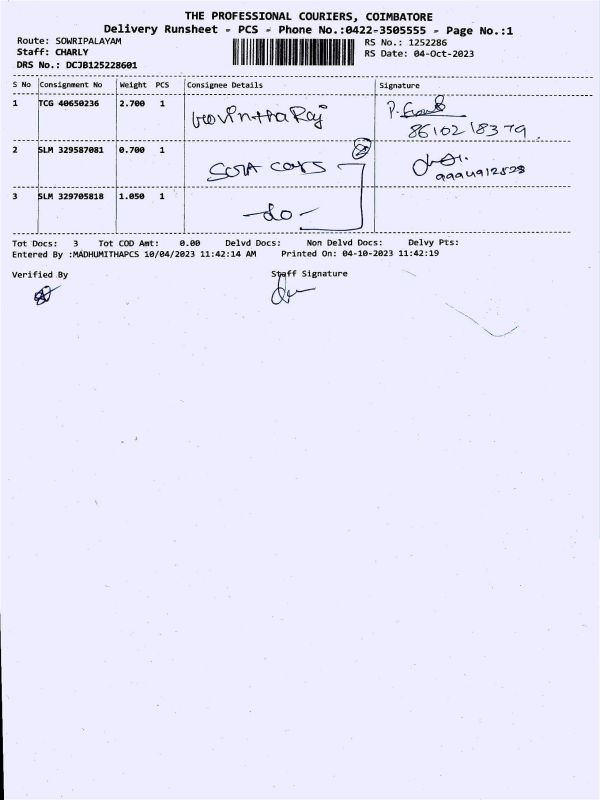 THE PROFESSIONAL COURIERS, COIMBATORE
Delivery Runsheet - PCS - Phone No.:0422-3505555 - Page No.:1
Route: SOWRIPALAYAM RS No.: 1252286
Staff: CHARLY RS Date: 04-Oct-2023
DRS No.: DCJB125228601
S No Consignment No Weight PCS Consignee Details Signature
1 TCG 40650236 2.700 1
86102 18379
2 SLM 329587081 0.700 1
3 SLM 329705818 1.050 1
-do-
Tot Docs: 3 Tot COD Amt: 0.00 Delvd Docs: Non Delvd Docs: Delvy Pts:
Entered By :MADHUMITHAPCS 10/04/2023 11:42:14 AM Printed On: 04-10-2023 11:42:19
Verified By Staff Signature